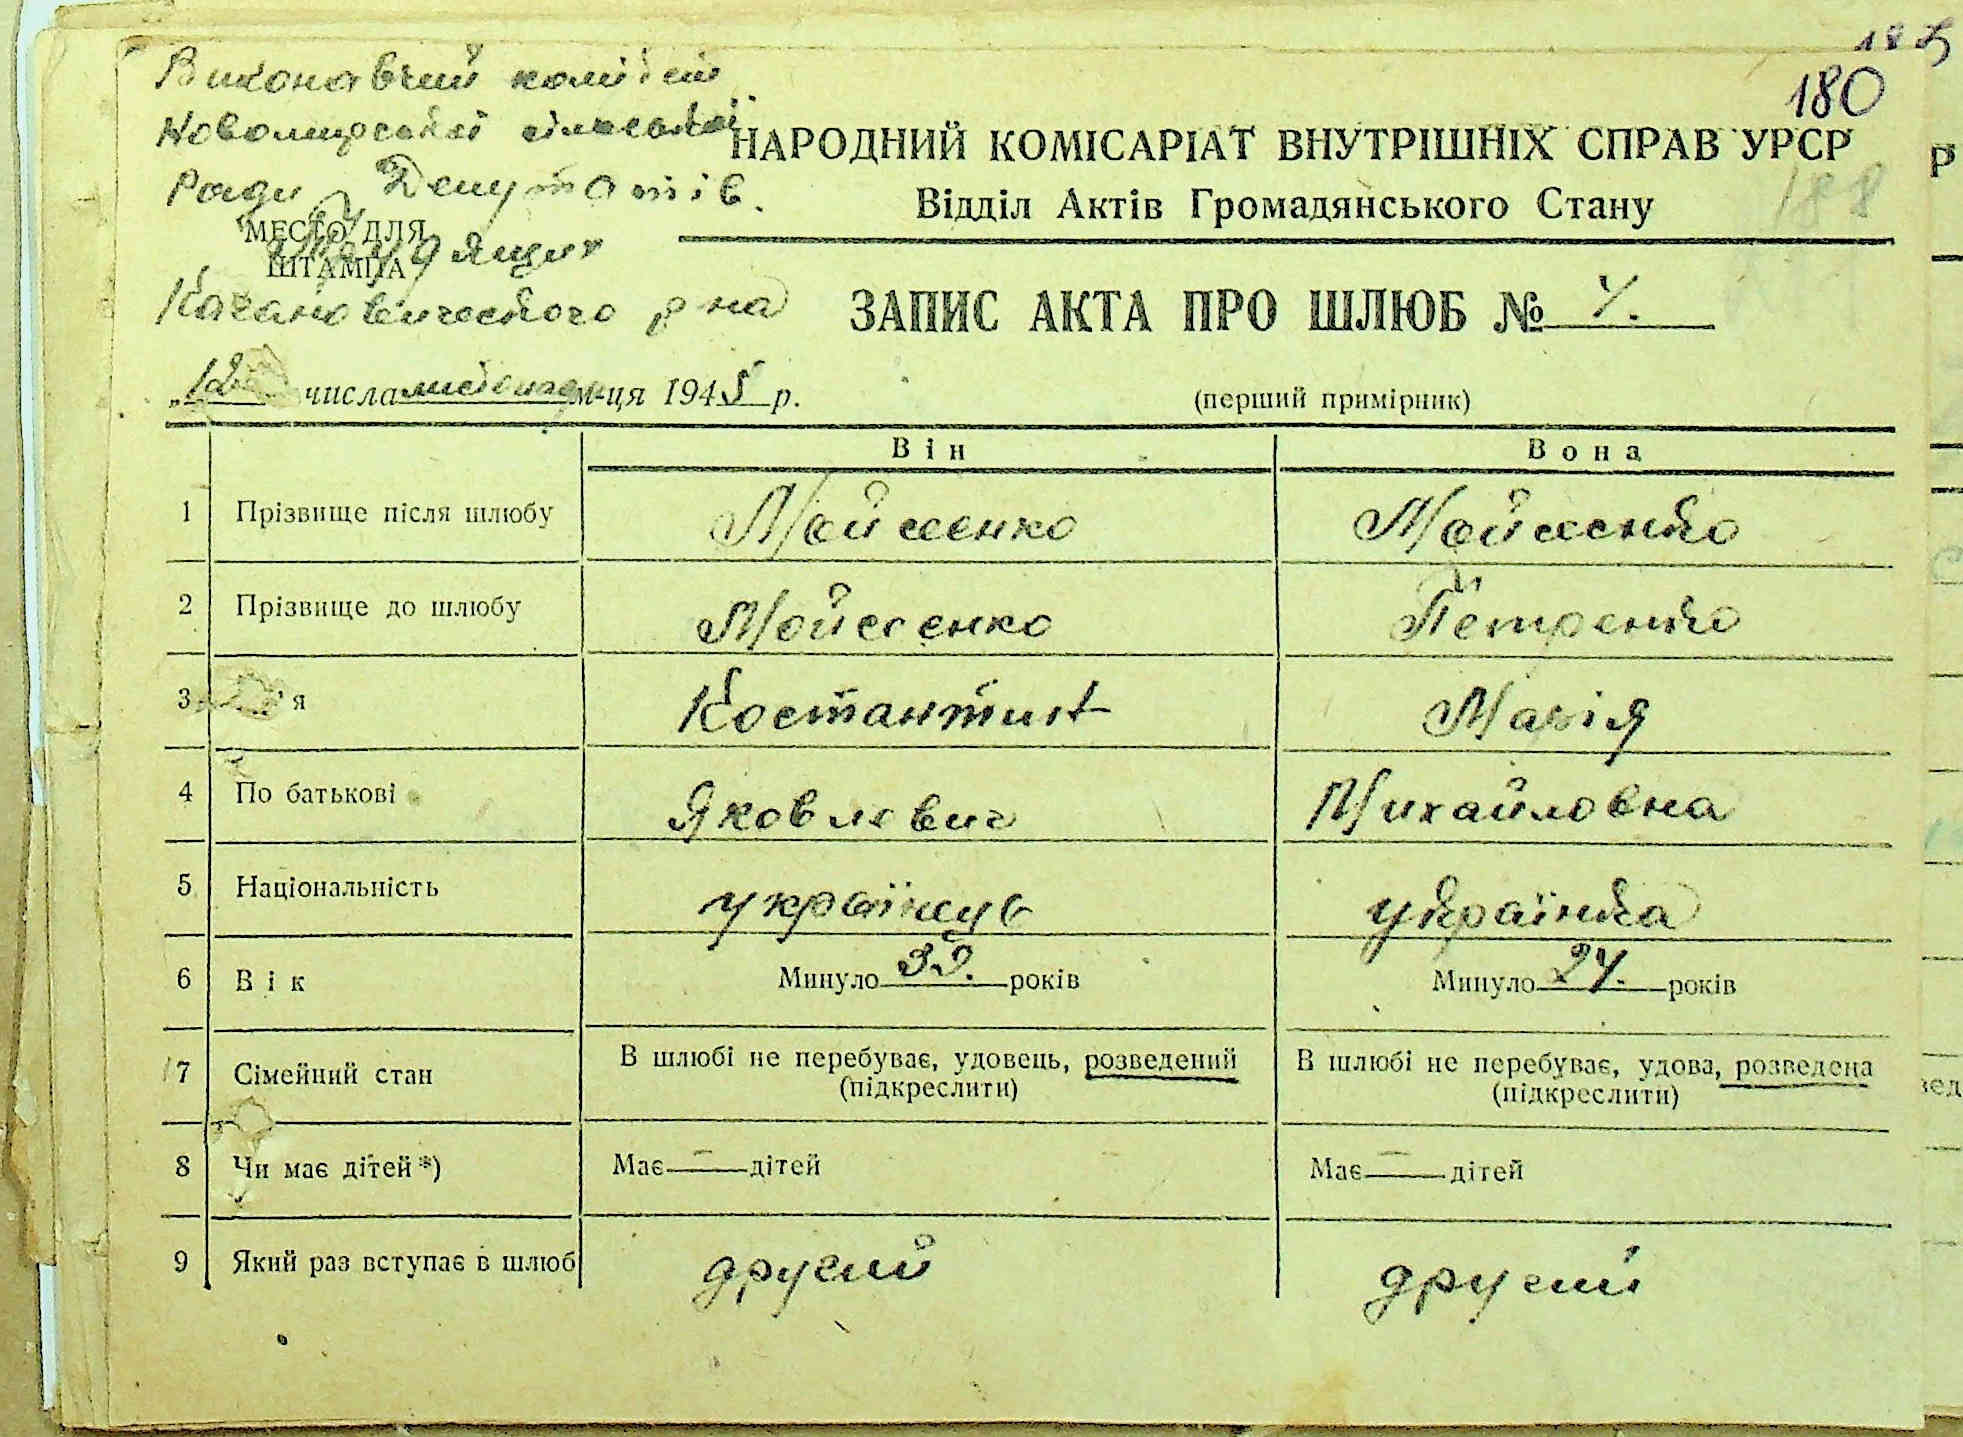 185
180
Виконавчий комітет
Новомирської сільської
НАРОДНИЙ КОМІСАРІАТ ВНУТРІШНІХ СПРАВ УРСР
Ради Депутатів
188
Відділ Актів Громадянського Стану
МЕСТО ДЛЯ
Трудящих
ШТАМПА
Кагановичского р на
ЗАПИС АКТА ПРО ШЛЮБ №
„12 числа листопада м-ця 1945 р.
(перший примірник)
Він Вона
1 Прізвище після шлюбу Мойсеенко Мойсеенко
2 Прізвище до шлюбу Мойсеенко Петренко
3 'я Костантин Марія
4 По батькові Яковлевич Михайловна
5 Національність українець українка
6 Вік Минуло років Минуло 24. років
7 Сімейний стан В шлюбі не перебуває, удовець, розведений В шлюбі не перебуває, удова, розведена
(підкреслити) (підкреслити)
8 Чи має дітей*) Має — дітей Має — дітей
9 Який раз вступає в шлюб другий другий